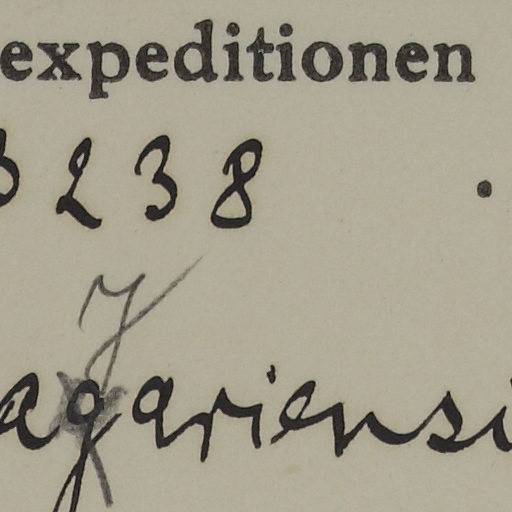 expeditionen
3 2 3 8 .
y
agariensi